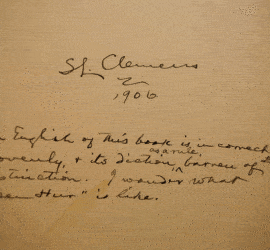 SL. Clemens
1906
n English of this book is incorrect &
ovenly, & its diction, as a rule, barren of
stinction. I wonder what
en Hur" is like.